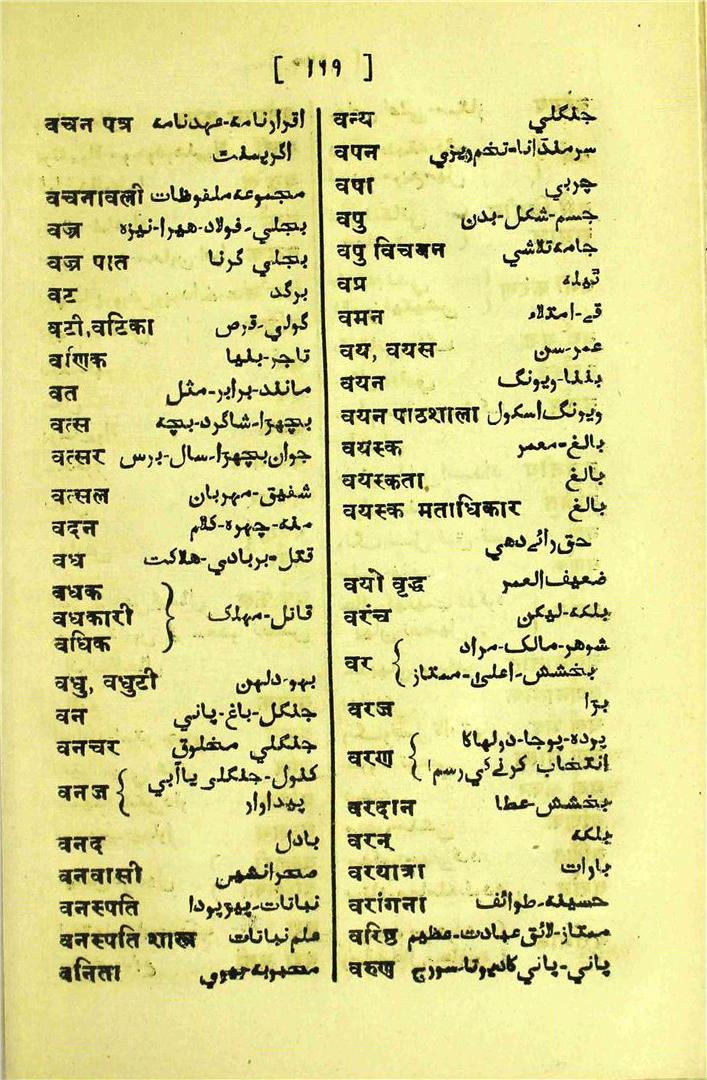 [ ۱۶۹ ]
वचन पत्र اقرارنامہ-عہدنامہ
اگریمنٹ
वचनावली مجموعہ ملفوظات
वज्र بجلي-فولاد-ہیرا-نیزہ
वज्र पात بجلي گرنا
वट برگد
वटी,वटिका گولي-قرص
वणिक تاجر-بنیا
वत مانند-برابر-مثل
वत्स بچھڑا-شاگرد-بچہ
वत्सर جوان بچھڑا-سال-برس
वत्सल شفیق-مہربان
वदन منہ-چہرہ-کلام
वध قتل-بربادي-ہلاکت
वधक
वधकारी } قاتل-مہلک
वधिक
वधु, वधुटी بہو-دلہن
वन جنگل-باغ-پاني
वनचर جنگلي مخلوق
वनज { کنول-جنگلي یا آبي
پیداوار
वनद بادل
वनवासी صحرانشین
वनस्पति نباتات-پیڑپودا
वनस्पति शास्त्र علم نباتات
वनिता محبوبہ-بیوي
वन्य جنگلي
वपन سرمنڈانا-تخم ریزي
वपा چربي
वपु جسم-شکل-بدن
वपु विचयन جامہ تلاشي
वप्र ٹیلہ
वमन قے-امتلاء
वय, वयस عمر-سن
वयन بننا-ویونگ
वयन पाठशाला ویونگ اسکول
वयस्क بالغ-معمر
वयस्कता بالغ
वयस्क मताधिकार بالغ
حق رائے دھي
वयो वृद्ध ضعیف العمر
वरंच بلکہ-لیکن
वर { شوہر-مالک-مراد
بخشش-اعلیٰ-ممتاز
वरज بڑا
वरण { پردہ-پوجا-دولہا کا
انتخاب کرنے کي رسم
वरदान بخشش-عطا
वरन् بلکہ
वरयात्रा بارات
वरांगना حسینہ-طوائف
वरिष्ठ ممتاز-لائق عبادت-عظیم
वरुण پاني-پاني کا دیوتا-سورج